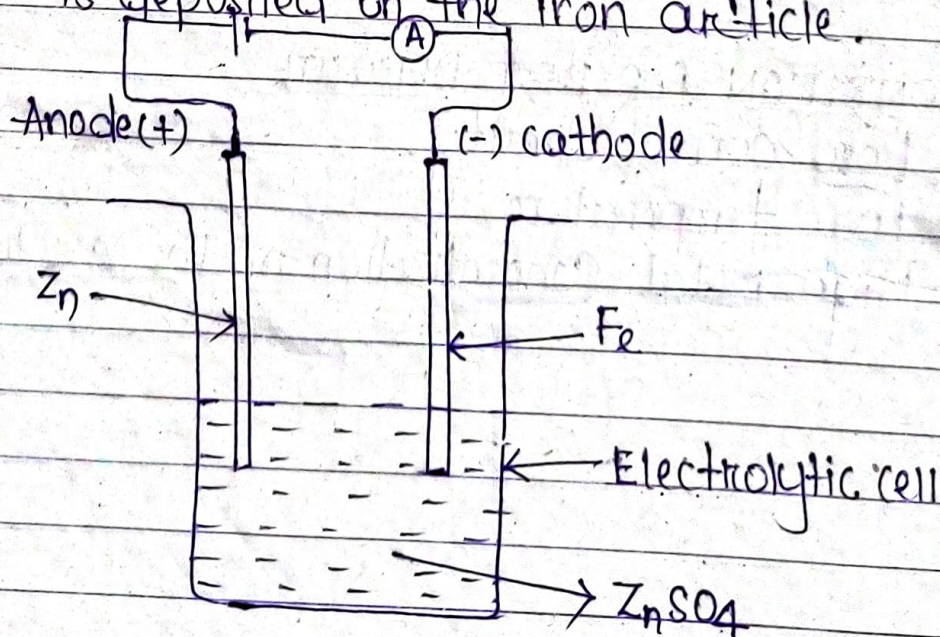 is deposited on the iron article.
A
Anode(+)
(-) cathode
Zn
Fe
Electrolytic cell
ZnSO4